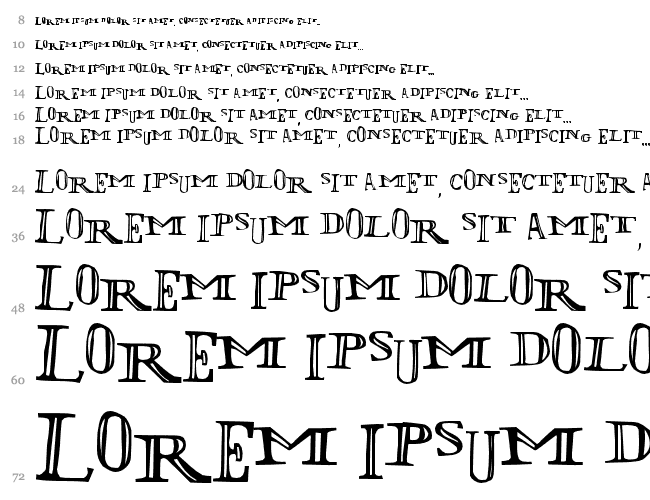 8 Lorem ipsum dolor sit amet, consectetuer adipiscing elit...
10 Lorem ipsum dolor sit amet, consectetuer adipiscing elit...
12 Lorem ipsum dolor sit amet, consectetuer adipiscing elit...
14 Lorem ipsum dolor sit amet, consectetuer adipiscing elit...
16 Lorem ipsum dolor sit amet, consectetuer adipiscing elit...
18 Lorem ipsum dolor sit amet, consectetuer adipiscing elit...
24 Lorem ipsum dolor sit amet, consectetuer a
36 Lorem ipsum dolor sit amet,
48 Lorem ipsum dolor sit
60 Lorem ipsum dolo
72 Lorem ipsum d